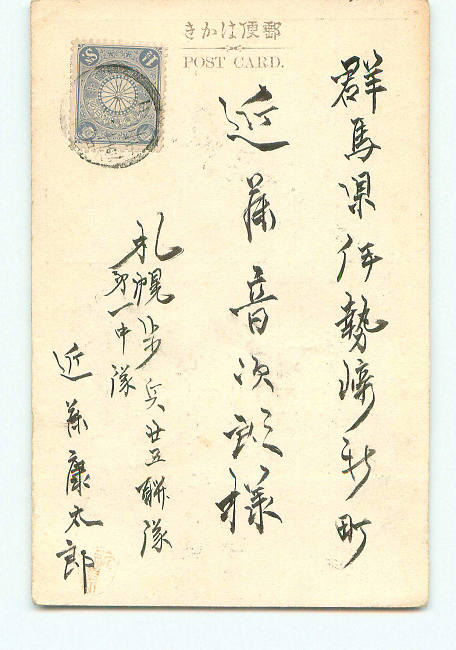 郵便はかき
POST CARD.
群馬県伊勢崎新町
近藤音次郎様
札幌歩兵廿五聯隊
第一中隊
近藤康太郎